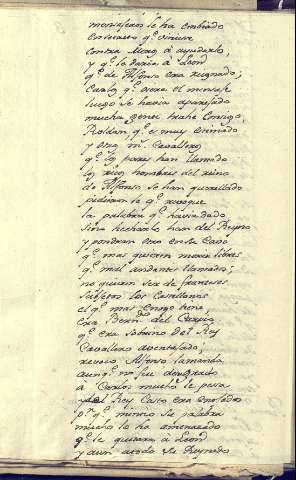 mensageros le ha embiado
en secreto q.e viniese
contra Moros á ayudarlo,
y q.e le daria á Leon
q.e de Alfonso era reynado;
Carlos q.e oiera el mensaje
luego se havia aparejado
mucha gente trahe consigo,
Roldan, q.e es muy estimado
y otros m.s Cavalleros
q.e los pares han llamado
los ricos hombres del reino
de Alfonso se han querellado
pidieron le q.e revoque
la palabra q.e havia dado
sino hecharlo han del Reyno
y pondran otro en su cavo
q.e mas quieren morir libres
q.e mal andantes llamados;
no quieren ser de franceses
subjetos los Castellanos
el q.e mas enojo
era Bern.do del Carpio
q.e era sobrino del Rey
Cavallero aventajado;
revocó Alfonso la manda
aunq.e no fue de su grado
á Carlos mucho le pesa
y del Rey Casto era enojado
p.r q.e mintió su palabra
mucho lo ha amenazado
q.e le quitara á Leon
y aun todo su Reynado